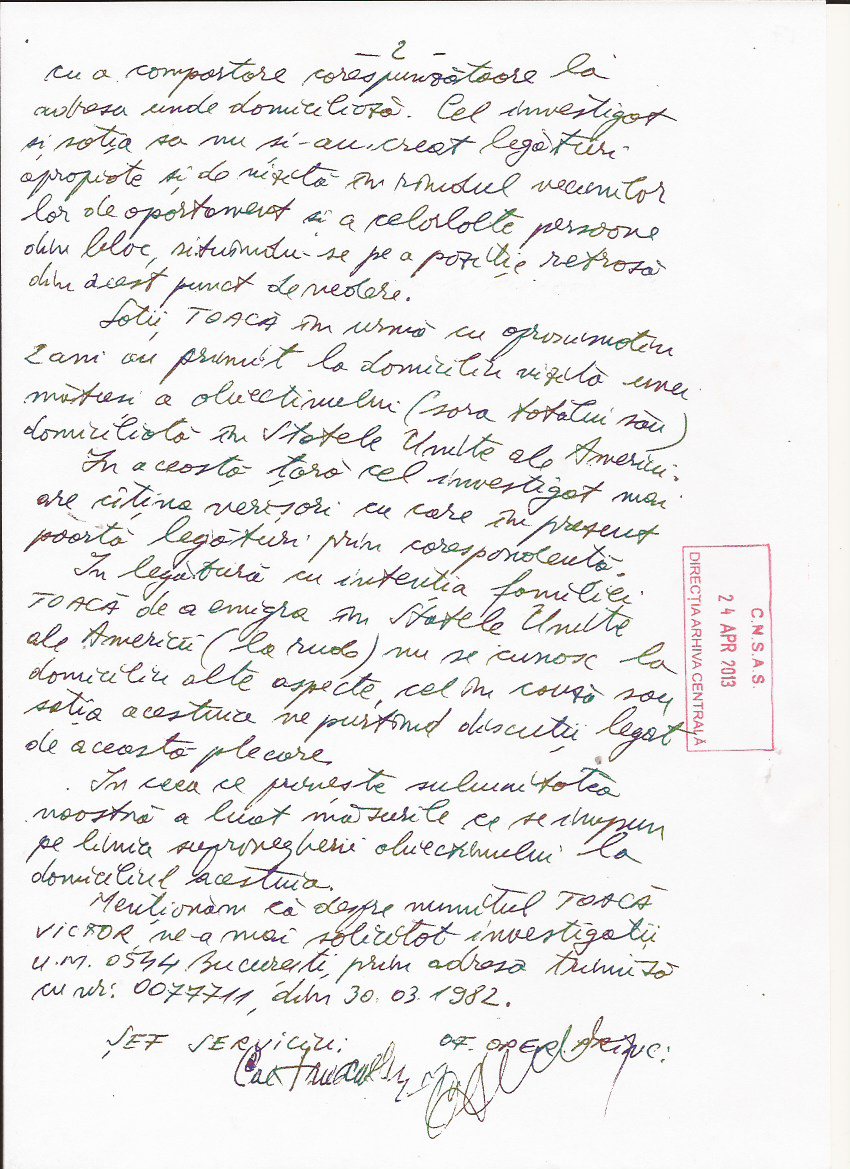 - 2 -
cu a comportare corespunzătoare la
adresa unde domiciliază. Cel investigat
și soția sa nu și-au creat legături
apropiate și de vizită în rîndul vecinilor
lor de apartament și a celorlalte persoane
din bloc, situîndu-se pe a poziție retrasă
din acest punct de vedere.
Soții TOACĂ în urmă cu aproximativ
2 ani au primit la domiciliu vizita unei
mătuși a obiectivului (sora tatălui său)
domiciliată în Statele Unite ale Americii.
In aceasta țară cel investigat mai
are cîțiva verișori cu care în prezent
poartă legături prin corespondență.
In legătură cu intenția familiei
TOACĂ de a emigra în Statele Unite
ale Americii (la rude) nu se cunosc la
domiciliu alte aspecte, cel în cauză sau
soția acestuia nepurtînd discuții legat
de această plecare.
In ceea ce privește subunitatea
noastră a luat măsurile ce se impun
pe linia supravegherii obiectivului la
domiciliul acestuia.
Menționăm că despre numitul TOACĂ
VICTOR, ne-a mai solicitat investigații
U.M. 0544 București, prin adresa trimisă
cu nr: 0077711, din 30.03.1982.
ȘEF SERVICIU: OF. OPER. PRINC:
C.N.S.A.S.
24 APR 2013
DIRECȚIA ARHIVA CENTRALĂ